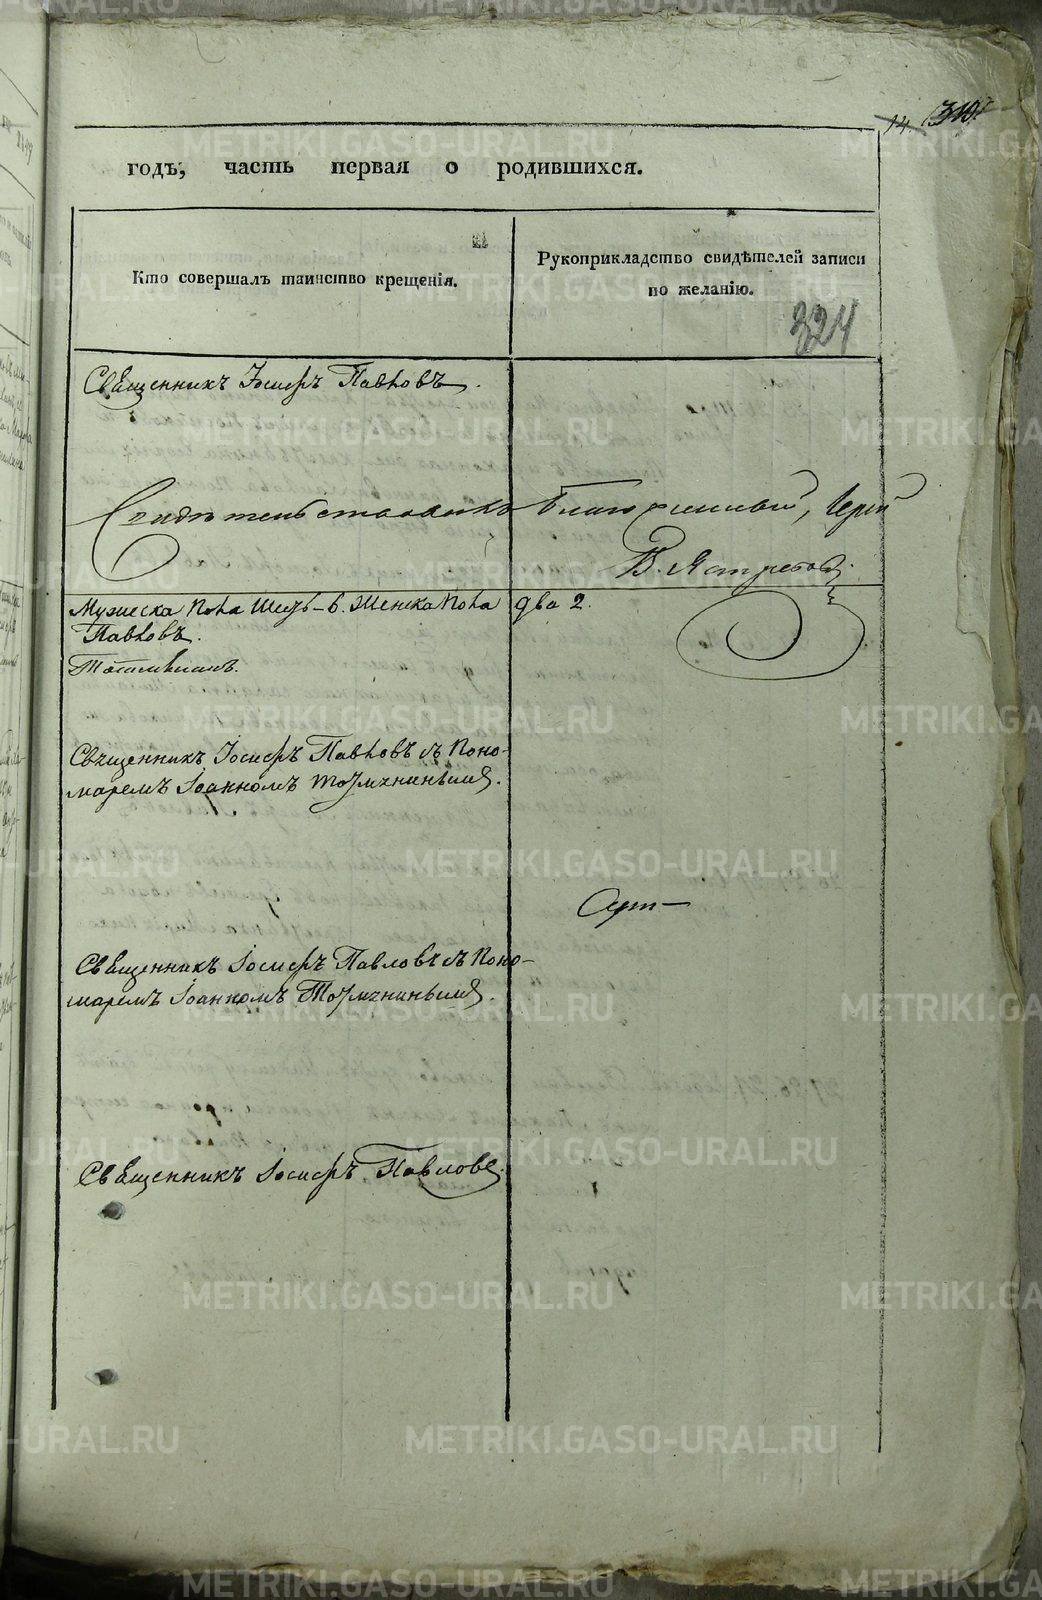 14.
годъ, часть первая о родившихся.
Кто совершалъ таинство крещенія.
Рукоприкладство свидѣтелей записи
по желанію.
324
Священникъ Іосифъ Павловъ.
Свидѣтельствовалъ Благочинный, Іерей
В. Ястребовъ.
Мужеска пола шесть – 6. Женска пола два 2.
Павловъ.
Священникъ Іосифъ Павловъ съ Поно-
маремъ Іоанномъ
Священникъ Іосифъ Павловъ съ Поно-
маремъ Іоанномъ
Священникъ Іосифъ Павловъ.
METRIKI.GASO-URAL.RU